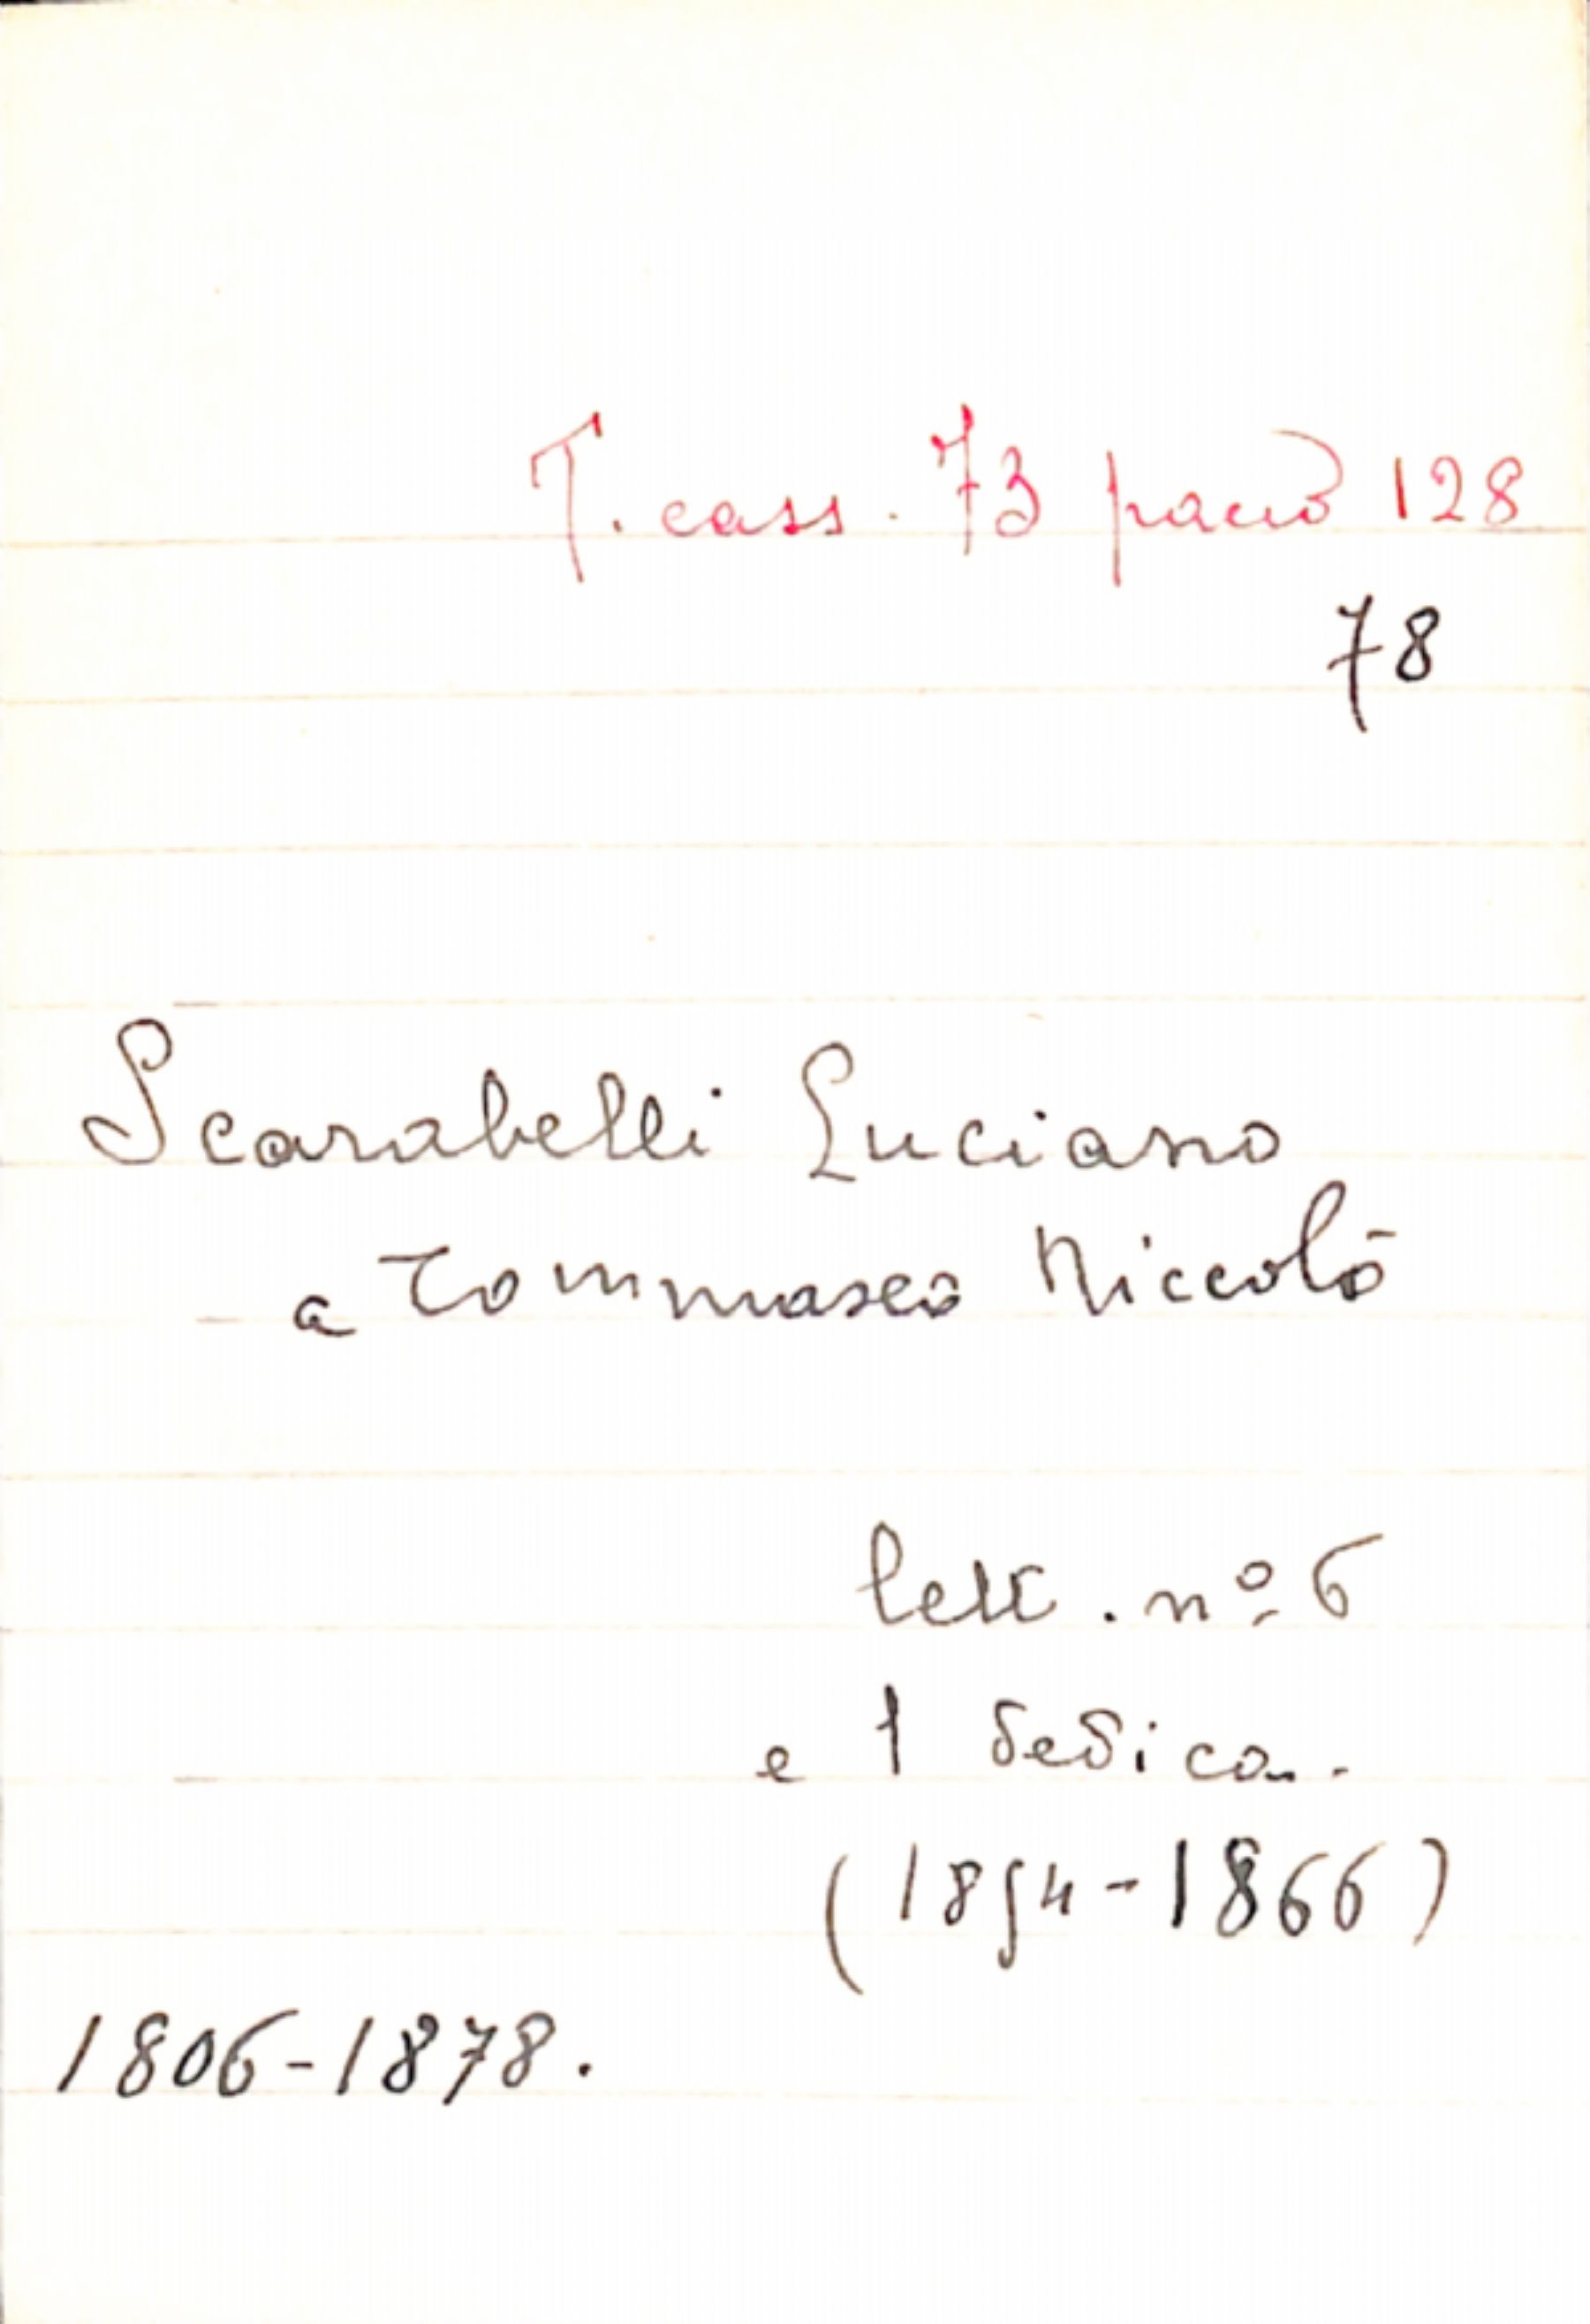 T. cass. 73 pacco 128
78
Scarabelli Luciano
a Tommaseo Niccolò
lett. nº 6
e 1 dedica..
(1854-1866)
1806-1878.